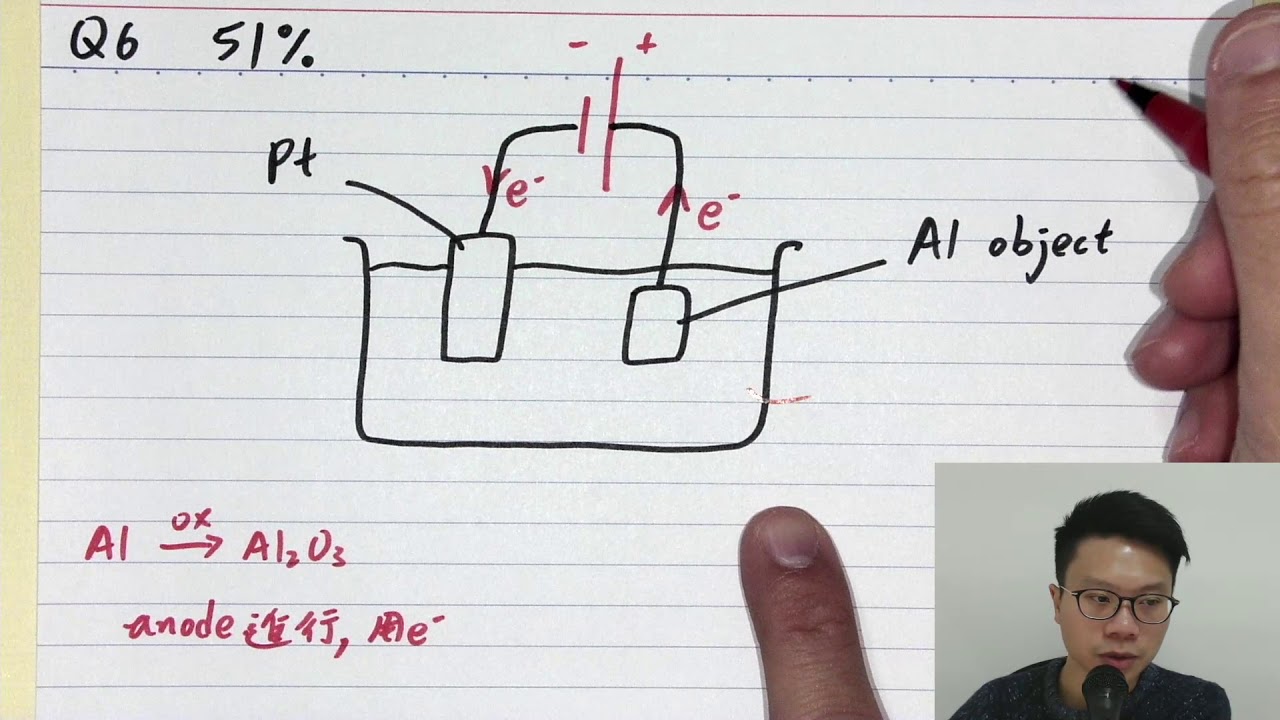 Q6 51%
- +
Pt
e-
e-
Al object
Al ox→ Al₂O₃
anode 進行, 用e-